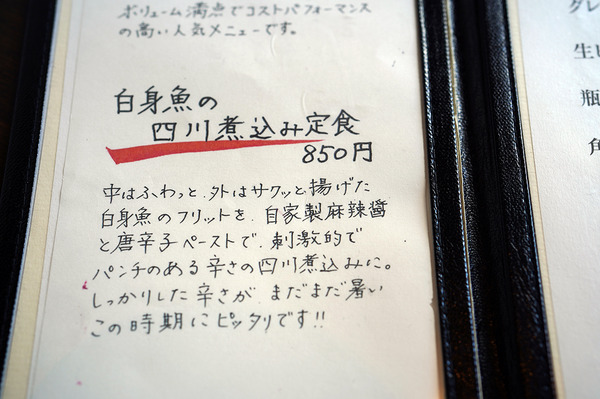 ボリューム満点でコストパフォーマンス
の高い人気メニューです。
白身魚の
四川煮込み定食
850円
中はふわっと、外はサクッと揚げた
白身魚のフリットを、自家製麻辣醤
と唐辛子ペーストで、刺激的で
パンチのある辛さの四川煮込みに。
しっかりした辛さが、まだまだ暑い
この時期にピッタリです!!
グレ
生ビ
瓶
角